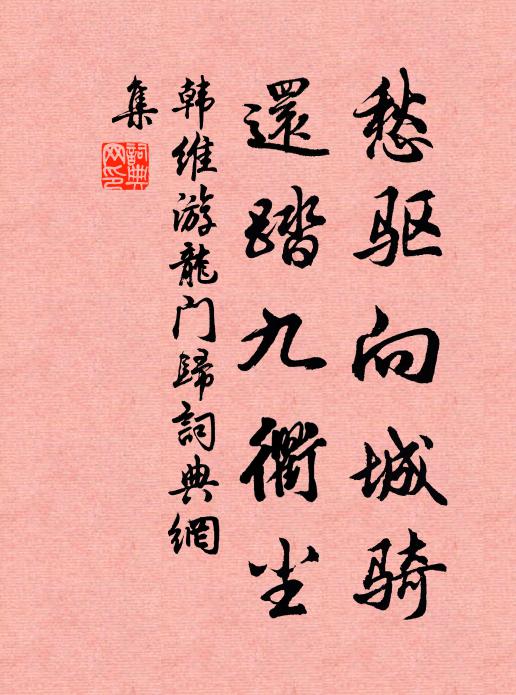 愁驱向城骑
還踏九衢尘
韩维游龍门歸詞典網
集
詞典網印